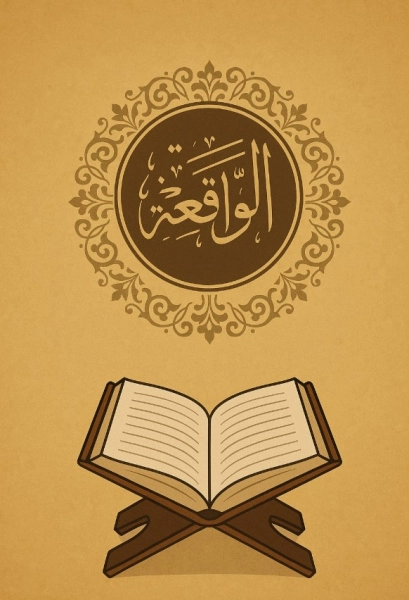 الواقعة